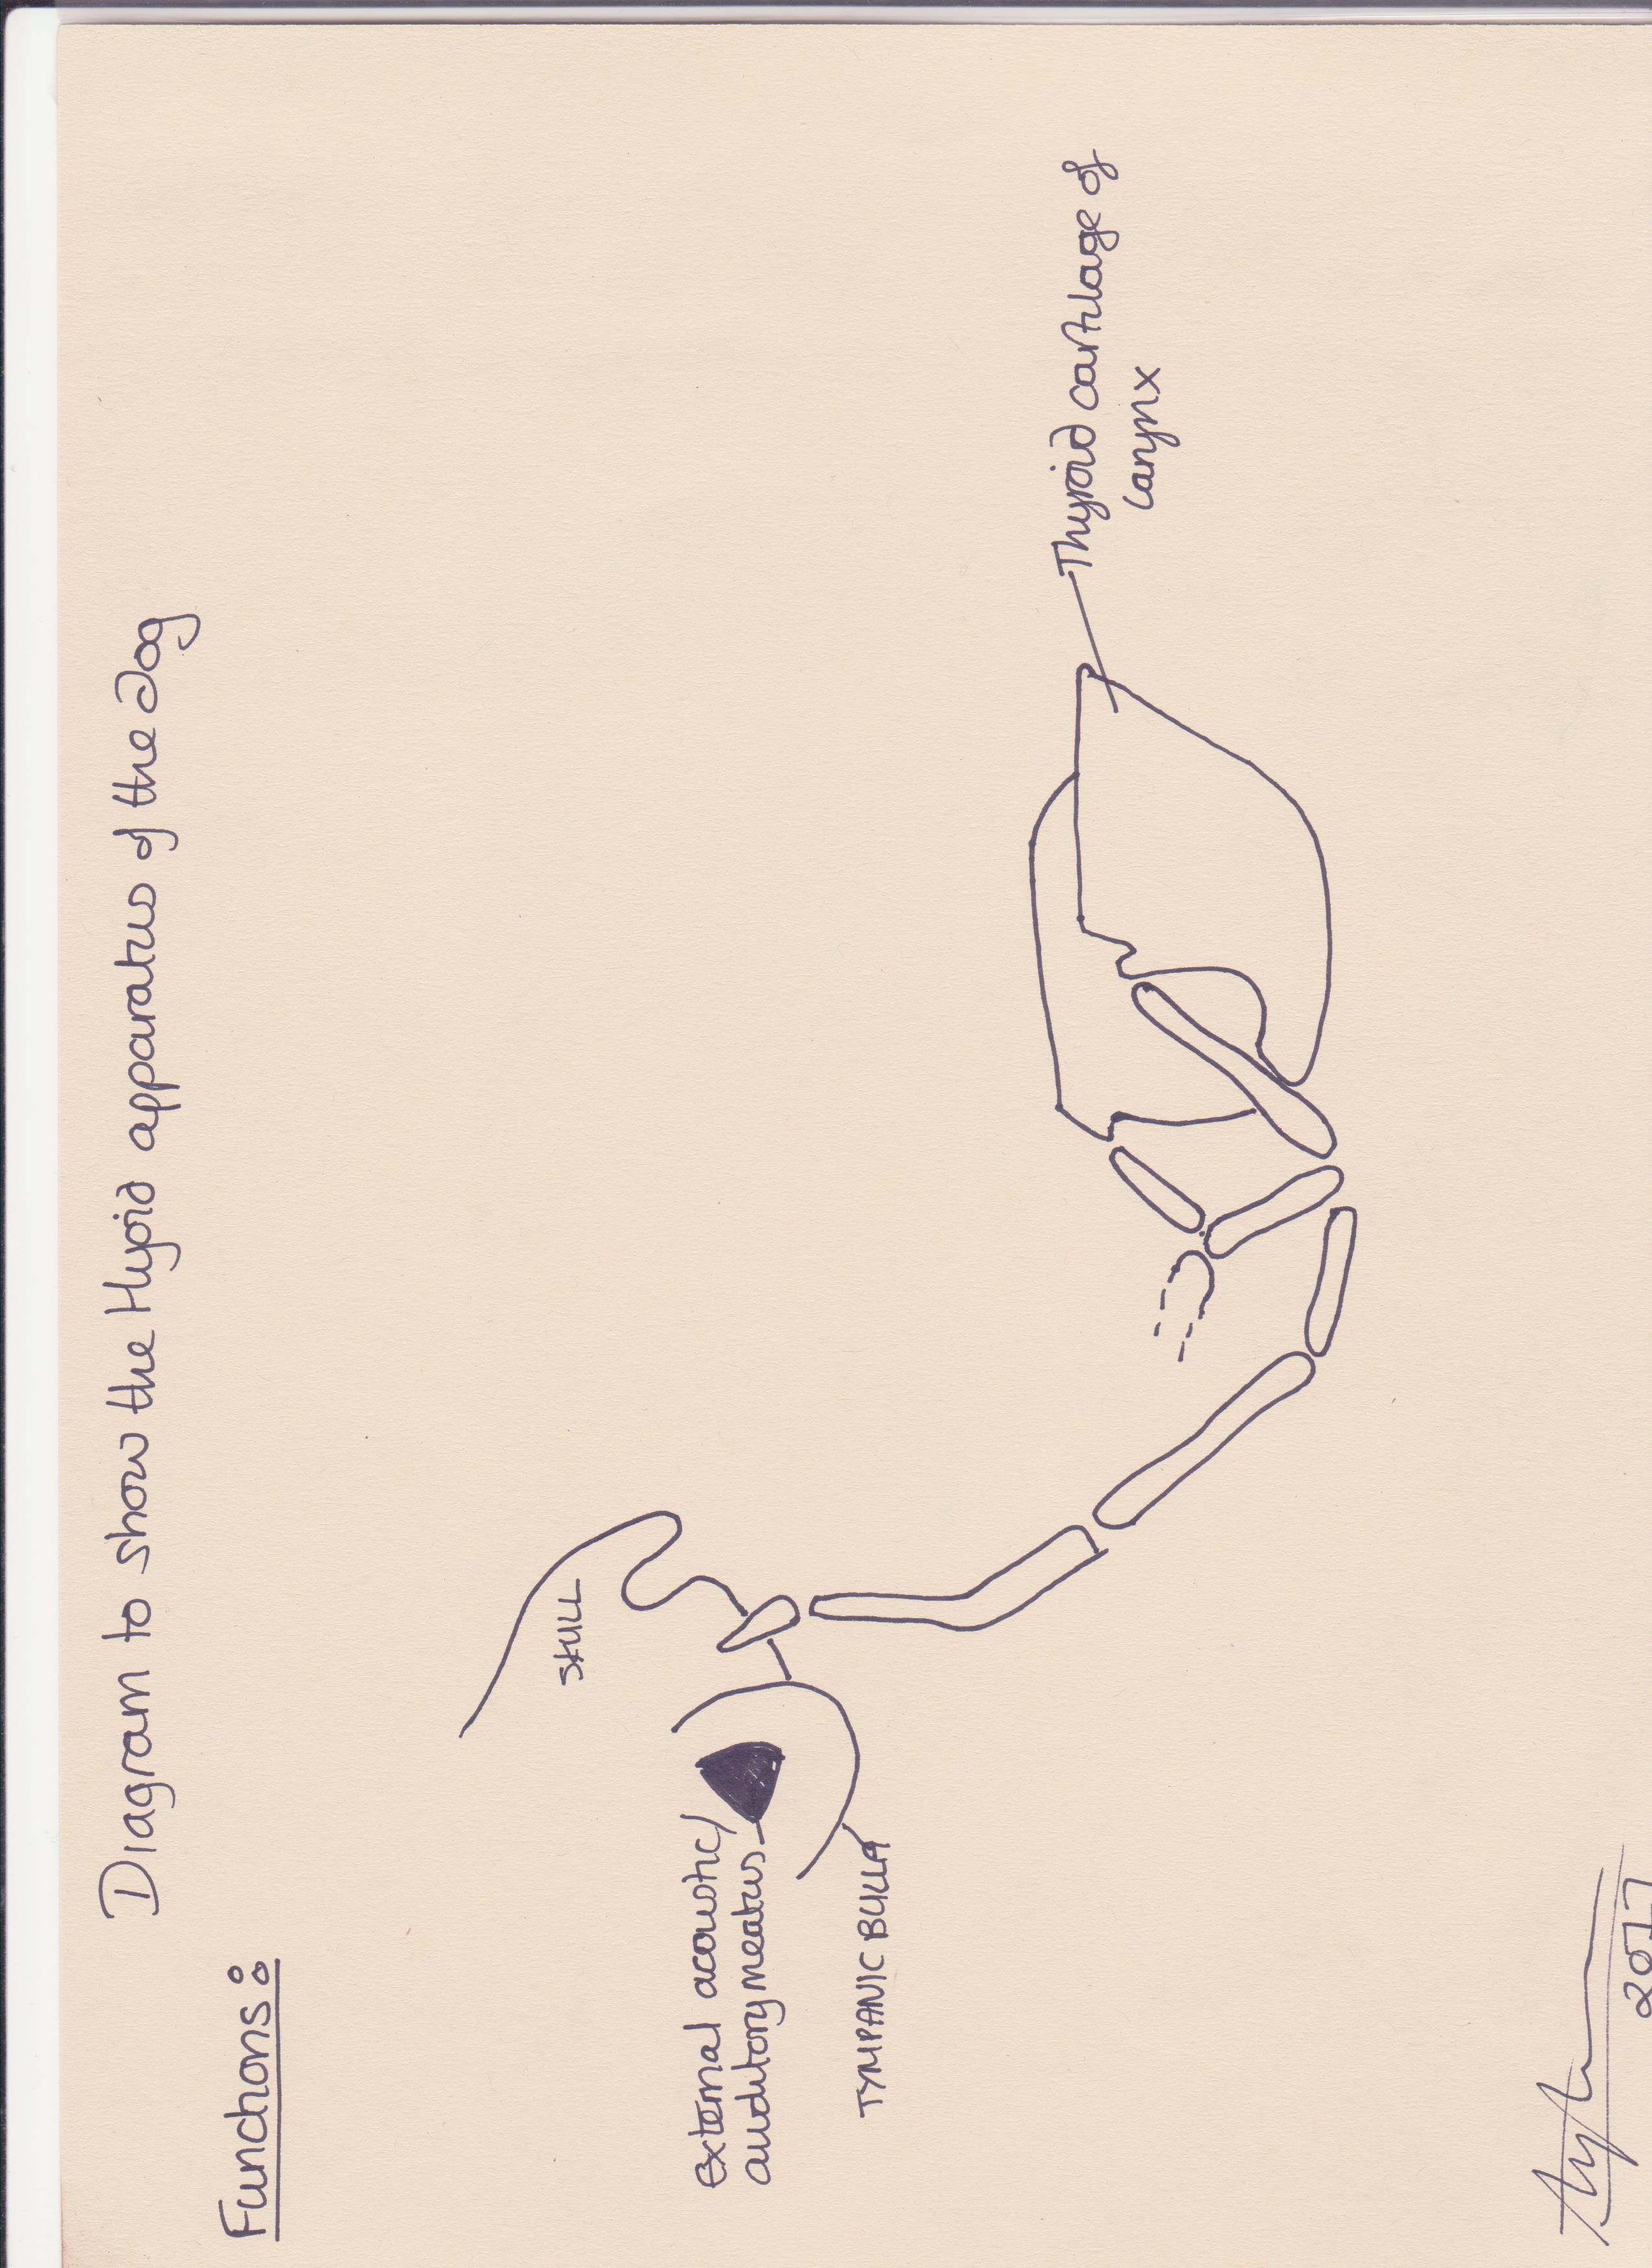 Diagram to show the Hyoid apparatus of the dog
Functions:
SKULL
external acoustic/
auditory meatus
TYMPANIC BULLA
Thyroid cartilage of
larynx
2017